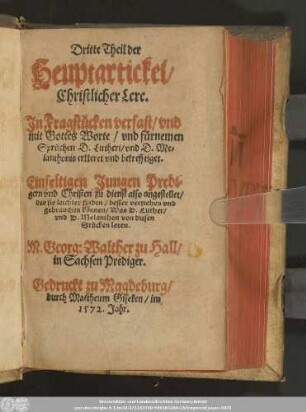 Dritte Theil der
Heuptartickel/
Christlicher Lere.
In Fragstücken verfast/ vnd
mit Gottes Worte/ vnd fürnemen
Sprüchen D. Lutheri/ vnd D. Me-
lanthonis erkleret vnd bekrefftiget.
Einfeltigen Jungen Predi-
gern vnd Christen zu dienst also angestellet/
das sie leichter finden/ besser verstehen vnd
gebrauchen können/ Was D. Luther/
vnd D. Melanthon von diesen
Stücken leren.
M. Georg: Walther zu Hall/
in Sachsen Prediger.
Gedruckt zu Magdeburg/
durch Mattheum Giseken/ im
1572. Jahr.